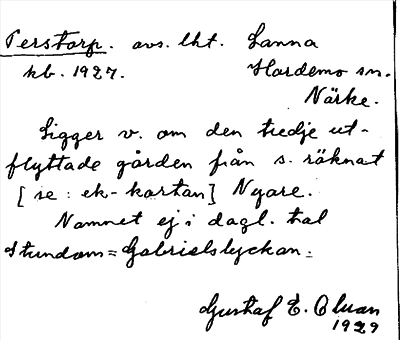 Perstorp. avs. lht. Sanna
kb. 1927. Hardemo sn.
Närke.
Ligger v. om den tredje ut-
flyttade gården från s. räknat
[se: ek-kartan] Nyare.
Namnet ej i dagl. tal
stundom = Gabrielslyckan.
Gustaf E.
1929